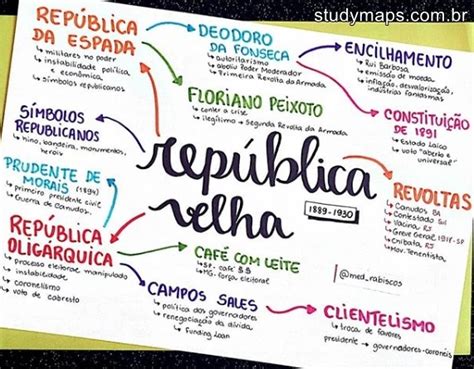 studymaps.com.br
REPÚBLICA
DA ESPADA
↳ militares no poder
↳ instabilidade política
e econômica
↳ símbolos republicanos
DEODORO
DA FONSECA
↳ autoritarismo
↳ aboliu Poder Moderador
↳ Primeira Revolta da Armada
ENCILHAMENTO
↳ Rui Barbosa
↳ emissão de moeda
↳ inflação, desvalorização,
indústrias fantasmas
FLORIANO PEIXOTO
↳ conter a crise
↳ ilegítimo → Segunda Revolta da Armada
CONSTITUIÇÃO
DE 1891
↳ Estado Laico
↳ voto "aberto e
universal"
SÍMBOLOS
REPUBLICANOS
↳ hino, bandeira, monumentos,
heróis
república
velha
1889-1930
PRUDENTE DE
MORAIS (1894)
↳ primeiro presidente civil
↳ Guerra de Canudos
REVOLTAS
↳ Canudos BA
↳ Contestado Sul
↳ Vacina RJ
↳ Greve Geral 1917-SP
↳ Chibata RJ
↳ Mov. Tenentista
REPÚBLICA
OLIGÁRQUICA
↳ processo eleitoral manipulado
↳ instabilidade
↳ coronelismo
↳ voto de cabresto
CAFÉ COM LEITE
↳ SP- café $$
↳ MG- força eleitoral
@med_rabiscos
CAMPOS SALES
↳ política dos governadores
↳ renegociação da dívida
↳ Funding Loan
CLIENTELISMO
↳ troca de favores
presidente → governadores → coronéis